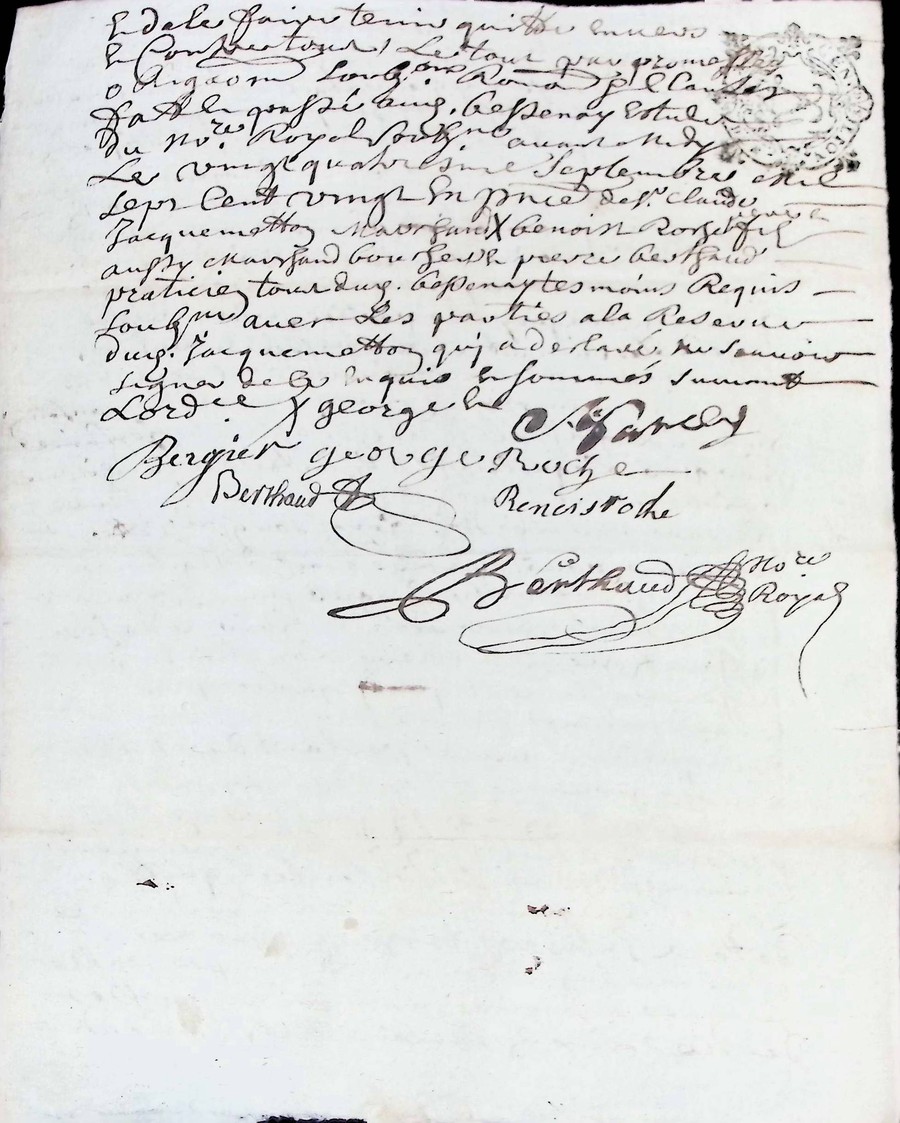 et de le faire tenir quitte envers
et Contre tous, Le tout par promesses
obligaõn Soubz.ons Renõn & Clauses
fait et passé aud. bessenay Estude
du No.re Royal Soubz.né avant Midy
Le vingt quatriesme Septembre Mil
sept Cent vingt En p̃nce de s.r Claude
Jacquemetton Marchand X benoist Roche fils
aussy Marchand boucher et pierre berthaud
praticien tous dud. bessenay tesmoins Requis
soubz.nes avec Les parties a la Reserve
dud. Jacquemetton qui a declaré ne scavoir
signer de ce Enquis et sommés suivant
Lord.ce X george et
Bergier george Roche
Berthaud Benoist roche
Berthaud No.re
Royal